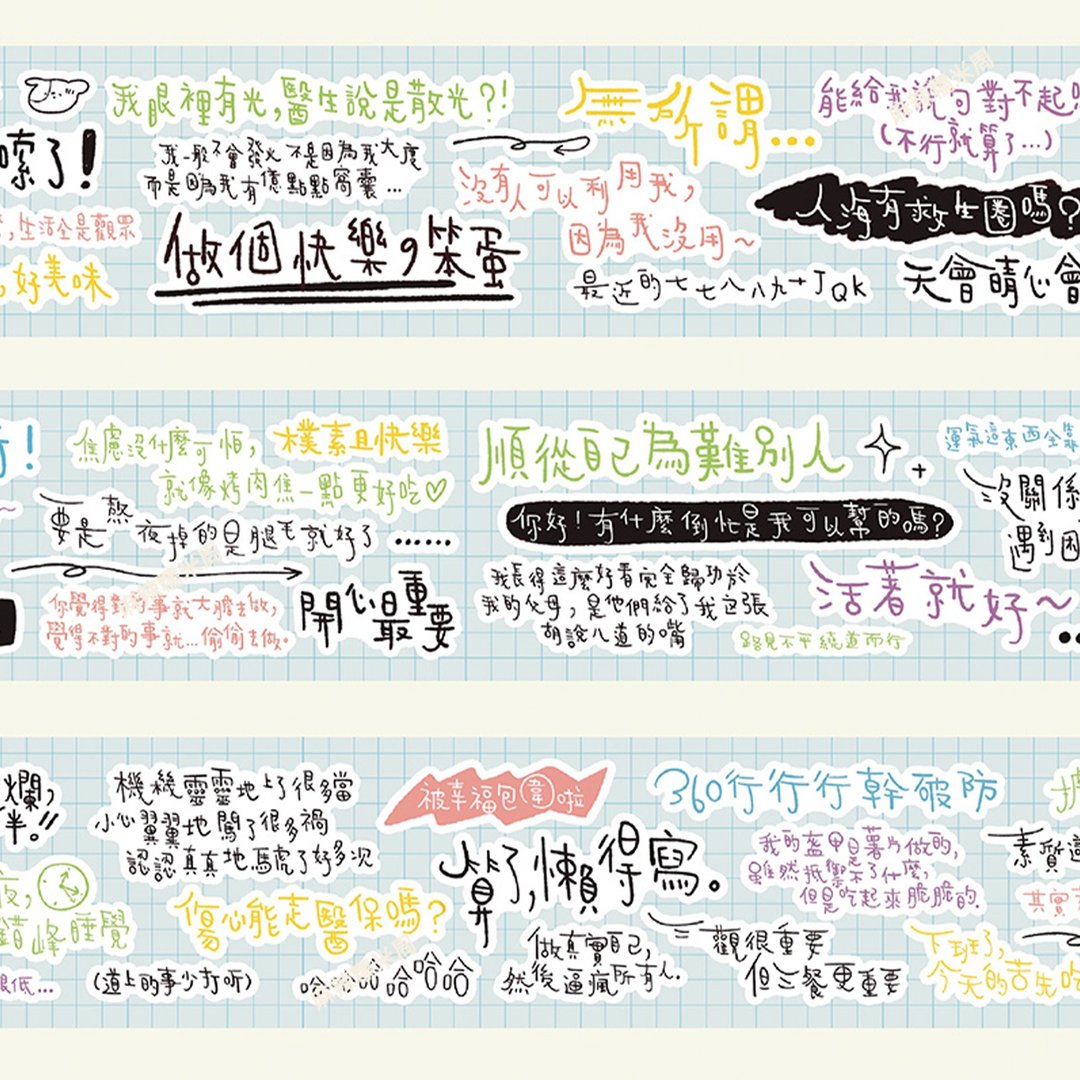 嗦了!
我眼裡有光,醫生說是散光?!
我一般不會發火 不是因為我大度
而是因為我有億點點窩囊...
,生活全是觀眾
好美味
做個快樂的笨蛋
無所謂...
沒有人可以利用我,
因為我沒用~
最近的七七八八九十JQK
能給我說句對不起嗎
(不行就算了...)
人海有救生圈嗎?
天會晴心會
!
焦慮沒什麼可怕,
就像烤肉焦一點更好吃♡
樸素且快樂
要是熬夜掉的是腿毛就好了......
你覺得對的事就大膽去做,
覺得不對的事就...偷偷去做。
開心最重要
順從自己為難別人
你好!有什麼倒忙是我可以幫的嗎?
我長得這麼好看完全歸功於
我的父母,是他們給了我這張
胡說八道的嘴
路見不平繞道而行
活著就好~
運氣這東西全靠
沒關係
遇到困
爛,
半!!
夜,
錯峰睡覺
很低...
機機靈靈地上了很多當
小心翼翼地闖了很多禍
認認真真地馬虎了好多次
傷心能走醫保嗎?
(道上的事少打听)
哈哈哈哈哈哈
被幸福包圍啦
算了,懶得寫。
做真實自己,
然後逼瘋所有人.
360行行行幹破防
我的盔甲是薯片做的,
雖然抵禦不了什麼,
但是吃起來脆脆的.
三觀很重要
但三餐更重要
素質這
其實
下班了,
今天的苦先吃